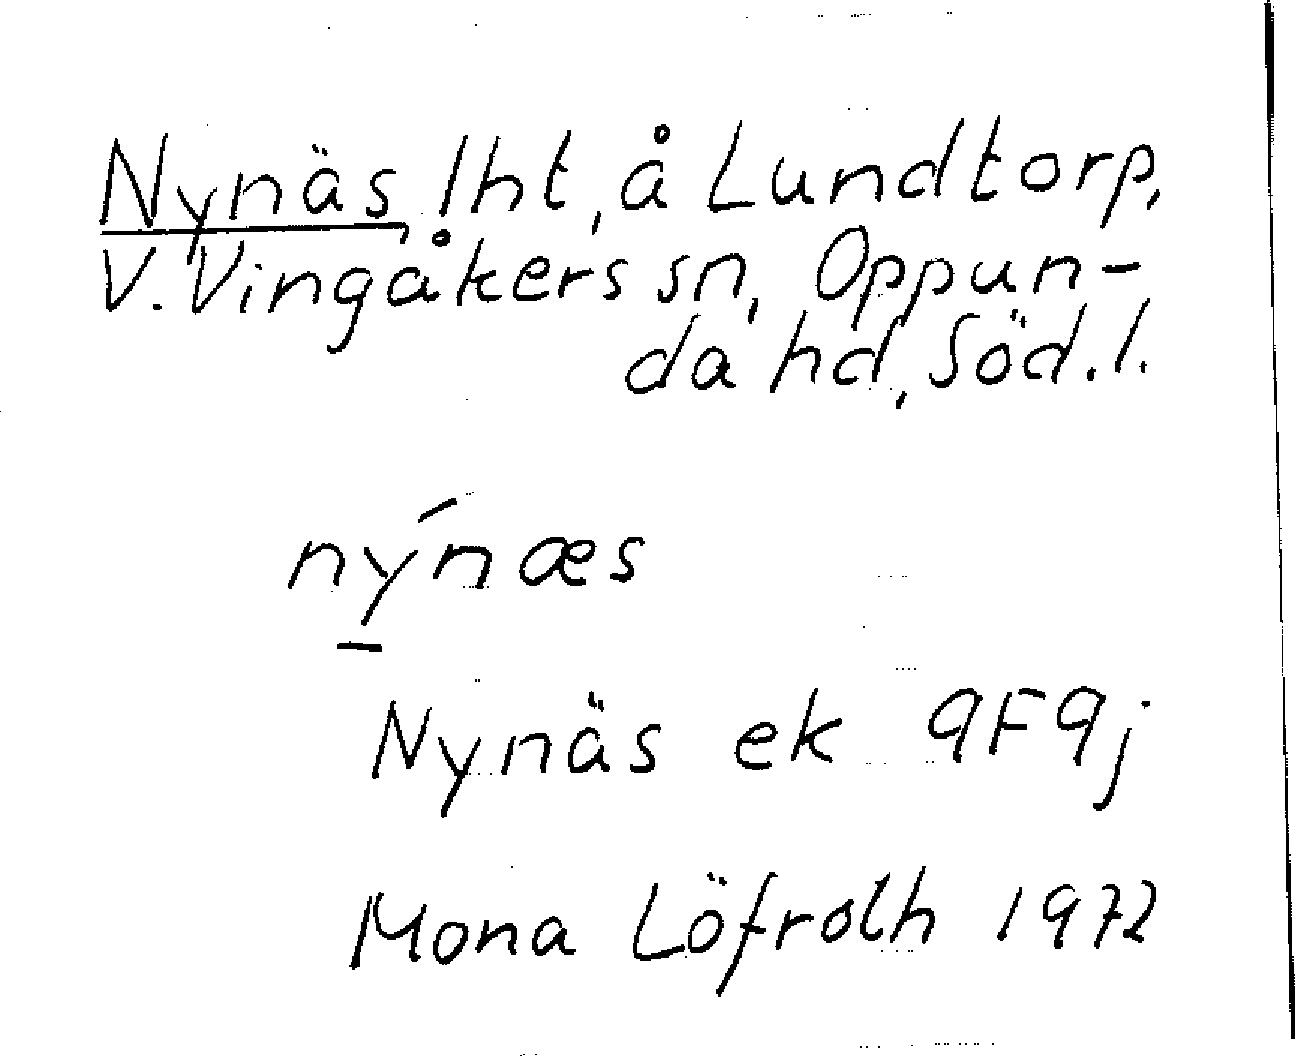 Nynäs, lht, å Lundtorp,
V. Vingåkers sn, Oppun-
da hd, Söd. l.
nýnæs
Nynäs ek 9F9j
Mona Löfroth 1972